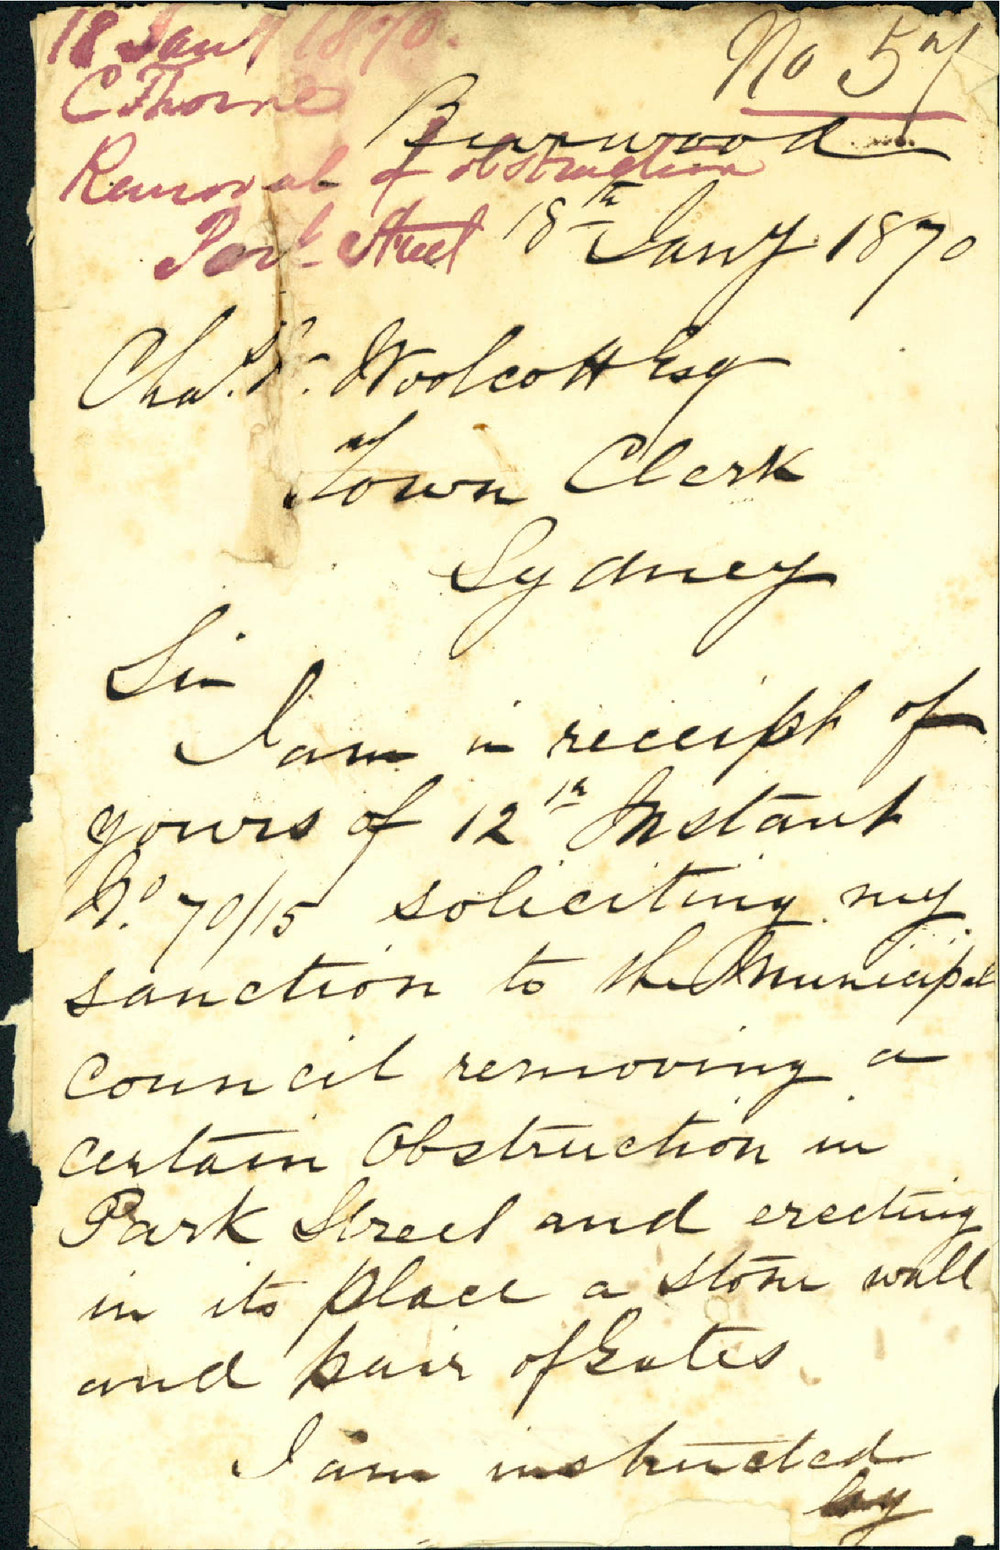 18 Jany 1870.
C Thorne
Removal of obstruction
Park Street
No 57
Burwood
18th Jany 1870
Chas. H. Woolcott Esq
Town Clerk
Sydney
Sir
I am in receipt of
yours of 12th Instant
No. 70/15 soliciting my
sanction to the Municipal
Council removing a
certain Obstruction in
Park Street and erecting
in its place a stone wall
and pair of Gates
I am instructed
by